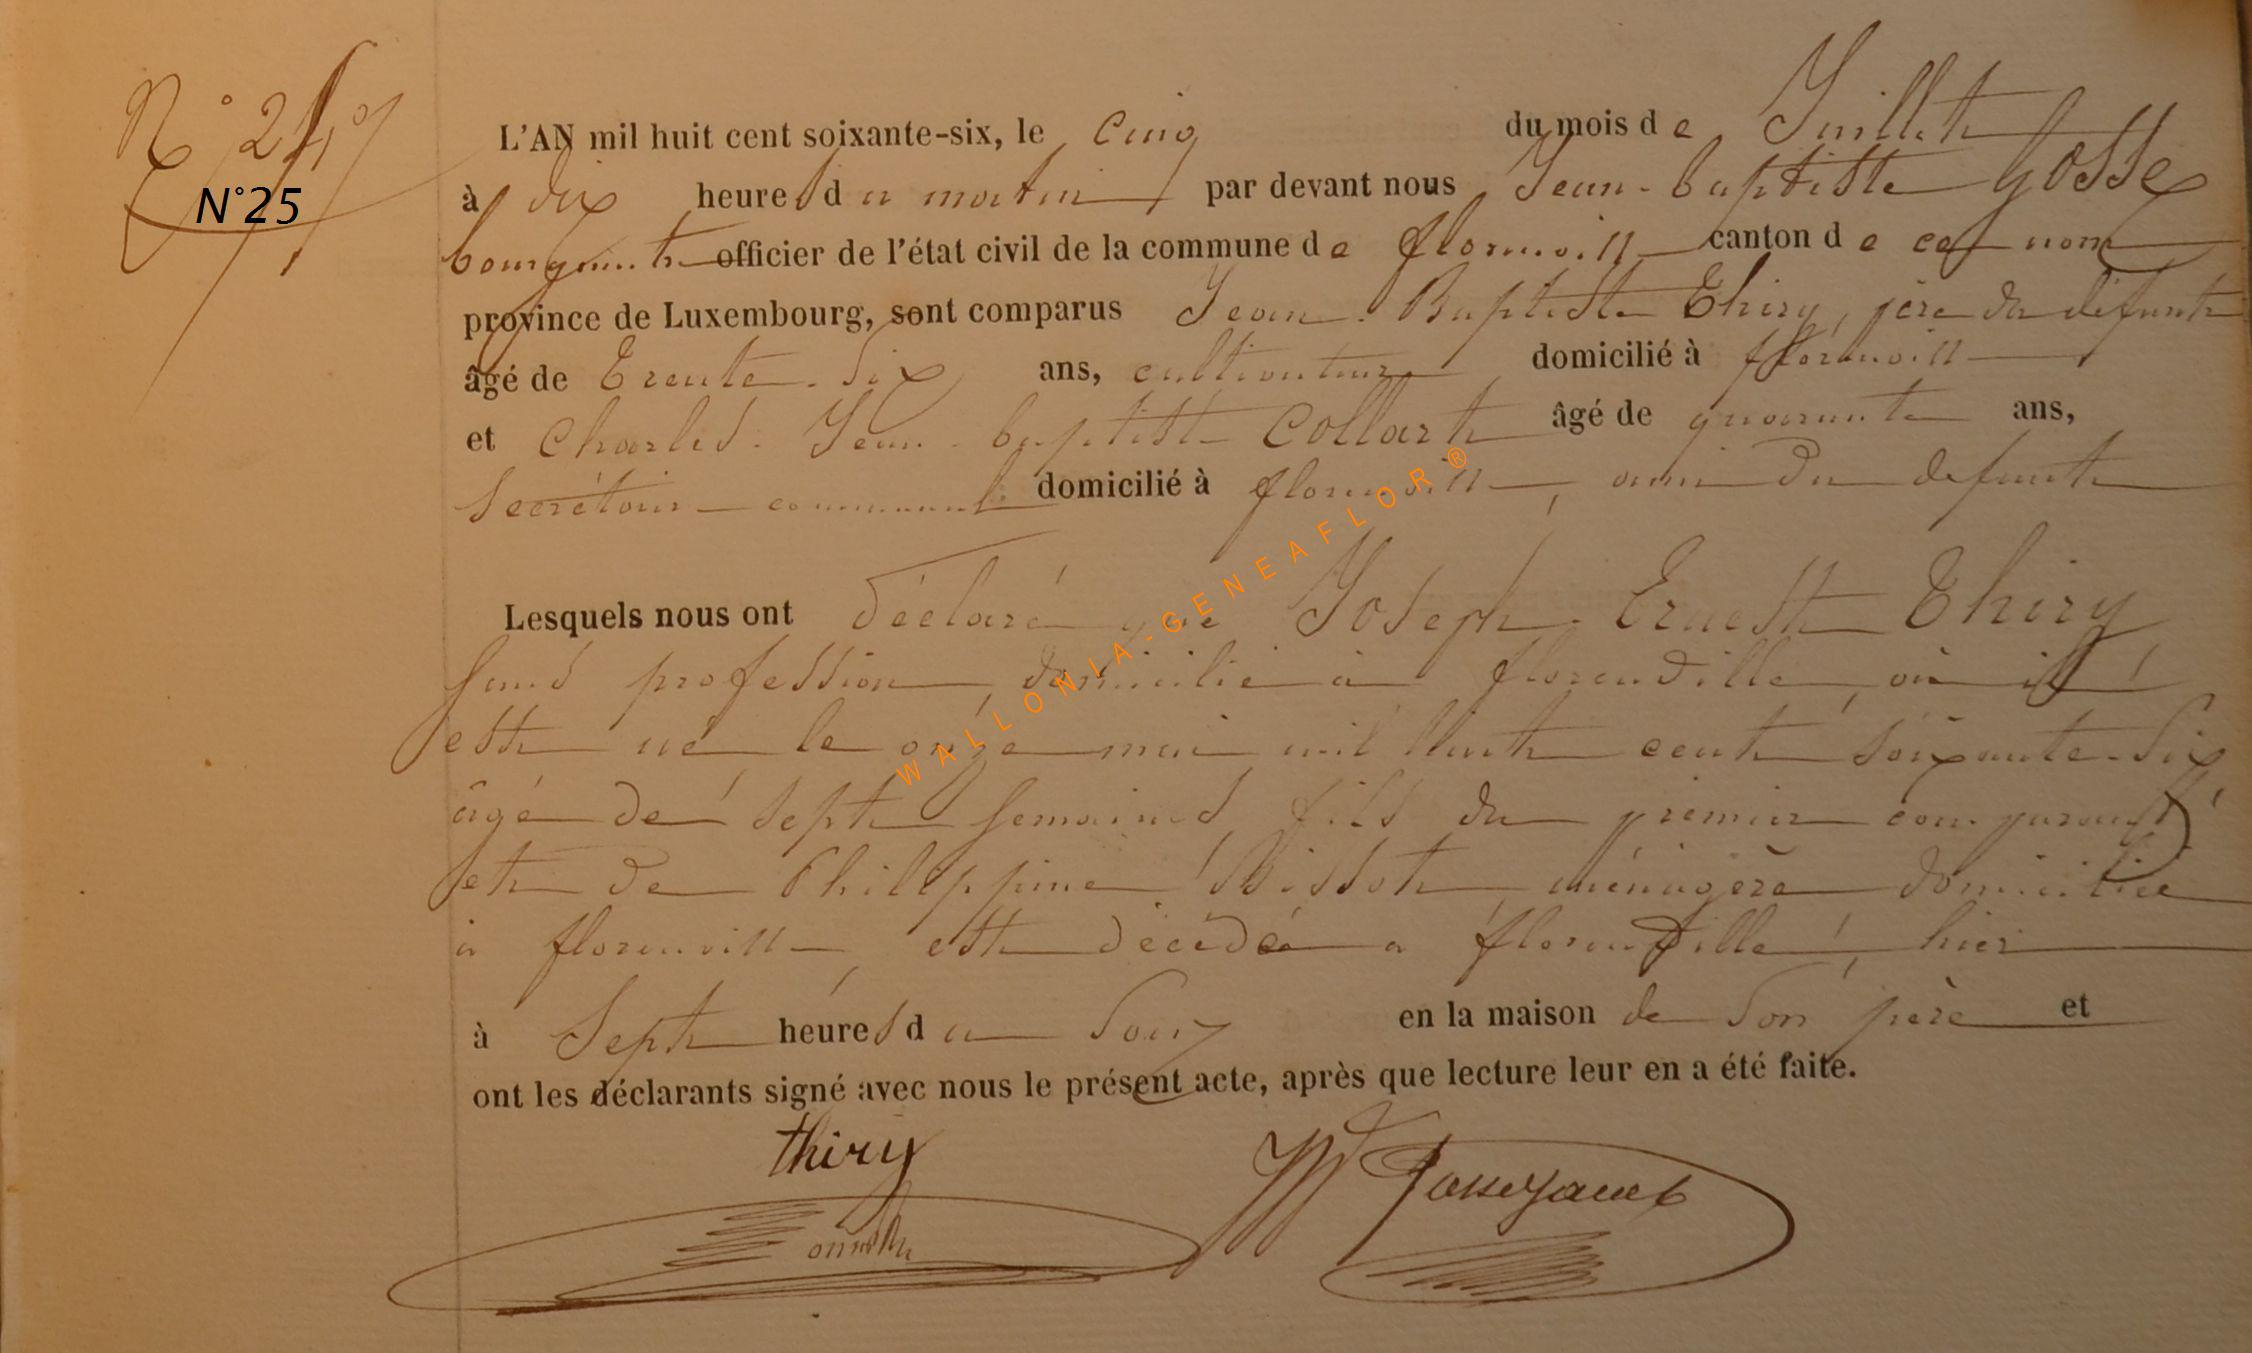 N° 25
N°25
L'AN mil huit cent soixante-six, le cinq du mois de Juillet
à dix heures du matin par devant nous Jean-baptiste Gosse
bourgmestre officier de l'état civil de la commune de florenville canton de ce nom
province de Luxembourg, sont comparus Jean-Baptiste Thiry, père du défunt
âgé de Trente-Six ans, cultivateur domicilié à florenville
et Charles-Jean-baptiste Collart âgé de quarante ans,
Secrétaire communal domicilié à florenville, ami du defunt
Lesquels nous ont déclaré que Joseph-Ernest Thiry
sans profession, domicilié à florenville, où il
est né le onze mai mil huit cent soixante-six
âgé de sept semaines, fils du premier comparant
et de Philippine Bissot, ménagère domiciliée
à florenville, est décédé à florenville, hier
à Sept heures du Soir en la maison de son père et
ont les déclarants signé avec nous le présent acte, après que lecture leur en a été faite.
thiry
WALLONIA-GENEAFLOR®